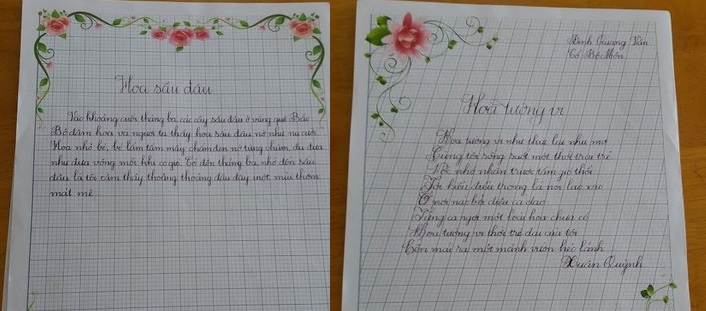 Hoa sầu đâu
Vào khoảng cuối tháng ba, các cây sầu đâu ở vùng quê Bắc
Bộ đâm hoa và người ta thấy hoa sầu đâu nở như nụ cười
Hoa nhỏ bé, bé lấm tấm mấy chấm đen nở từng chùm, đu đưa
như đưa võng mỗi khi có gió. Cứ đến tháng ba, nhớ đến sầu
đâu là tôi cảm thấy thoang thoảng đâu đây một mùi thơm
mát mẻ
Đinh Quang Văn
Tổ: Bộ Môn
Hoa tường vi
Hoa tường vi như thực lại như mơ
Cùng tôi sống suốt một thời trai trẻ
nhỏ nhắn trước tấm gió thổi
Tôi hiểu điều trong là nơi
Ở nơi nào bởi điều ca dao
Tặng ca ngợi một loài hoa chưa có
Hoa tường vi thời trẻ dại của tôi
Còn mãi ra một mảnh vườn hẻo lánh
Xuân Quỳnh